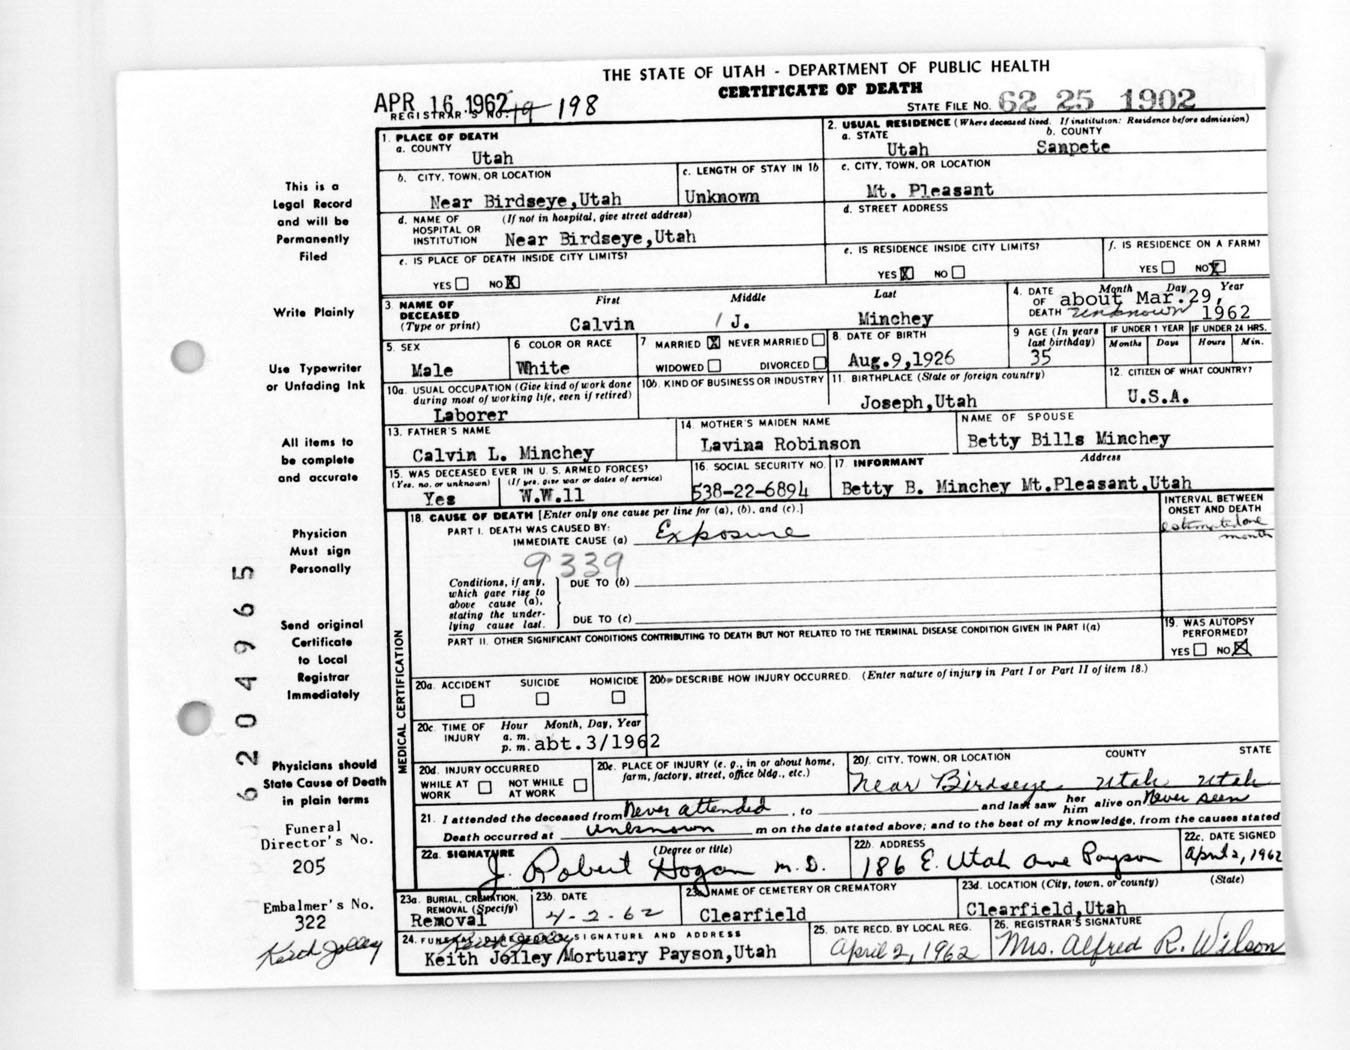 THE STATE OF UTAH - DEPARTMENT OF PUBLIC HEALTH
CERTIFICATE OF DEATH
APR 16 1962
REGISTRAR'S NO. 19 198
STATE FILE NO. 62 25 1902
This is a
Legal Record
and will be
Permanently
Filed
Write Plainly
Use Typewriter
or Unfading Ink
All items to
be complete
and accurate
Physician
Must sign
Personally
Send original
Certificate
to Local
Registrar
Immediately
Physicians should
State Cause of Death
in plain terms
Funeral
Director's No.
205
Embalmer's No.
322
Keith Jolley
6204965
1. PLACE OF DEATH
a. COUNTY
Utah
2. USUAL RESIDENCE (Where deceased lived. If institution: Residence before admission)
a. STATE b. COUNTY
Utah Sanpete
b. CITY, TOWN, OR LOCATION
Near Birdseye,Utah
c. LENGTH OF STAY IN 1b
Unknown
c. CITY, TOWN, OR LOCATION
Mt. Pleasant
d. NAME OF HOSPITAL OR INSTITUTION (If not in hospital, give street address)
Near Birdseye,Utah
d. STREET ADDRESS
e. IS PLACE OF DEATH INSIDE CITY LIMITS?
YES NO X
e. IS RESIDENCE INSIDE CITY LIMITS?
YES X NO
f. IS RESIDENCE ON A FARM?
YES NO X
3. NAME OF DECEASED (Type or print)
First Middle Last
Calvin J. Minchey
4. DATE OF DEATH
Month Day Year
about Mar.29,
unknown 1962
5. SEX
Male
6 COLOR OR RACE
White
7 MARRIED X NEVER MARRIED
WIDOWED DIVORCED
8. DATE OF BIRTH
Aug.9,1926
9 AGE (In years last birthday)
35
IF UNDER 1 YEAR IF UNDER 24 HRS.
Months Days Hours Min.
10a. USUAL OCCUPATION (Give kind of work done during most of working life, even if retired)
Laborer
10b. KIND OF BUSINESS OR INDUSTRY
11. BIRTHPLACE (State or foreign country)
Joseph,Utah
12. CITIZEN OF WHAT COUNTRY?
U.S.A.
13. FATHER'S NAME
Calvin L. Minchey
14. MOTHER'S MAIDEN NAME
Lavina Robinson
NAME OF SPOUSE
Betty Bills Minchey
15. WAS DECEASED EVER IN U.S. ARMED FORCES?
(Yes, no, or unknown) (If yes, give war or dates of service)
Yes W.W.11
16. SOCIAL SECURITY NO.
538-22-6894
17. INFORMANT Address
Betty B. Minchey Mt.Pleasant,Utah
MEDICAL CERTIFICATION
18. CAUSE OF DEATH [Enter only one cause per line for (a), (b), and (c).]
PART I. DEATH WAS CAUSED BY:
IMMEDIATE CAUSE (a) Exposure
9339
INTERVAL BETWEEN ONSET AND DEATH
estimated one
month
Conditions, if any, which gave rise to above cause (a), stating the underlying cause last.
DUE TO (b)
DUE TO (c)
PART II. OTHER SIGNIFICANT CONDITIONS CONTRIBUTING TO DEATH BUT NOT RELATED TO THE TERMINAL DISEASE CONDITION GIVEN IN PART I(a)
19. WAS AUTOPSY PERFORMED?
YES NO X
20a. ACCIDENT SUICIDE HOMICIDE
20b. DESCRIBE HOW INJURY OCCURRED. (Enter nature of injury in Part I or Part II of item 18.)
20c. TIME OF INJURY Hour Month, Day, Year
a. m.
p. m. abt.3/1962
20d. INJURY OCCURRED
WHILE AT WORK NOT WHILE AT WORK
20e. PLACE OF INJURY (e. g., in or about home, farm, factory, street, office bldg., etc.)
20f. CITY, TOWN, OR LOCATION COUNTY STATE
Near Birdseye Utah Utah
21. I attended the deceased from Never attended, to and last saw her him alive on Never seen
Death occurred at unknown m on the date stated above; and to the best of my knowledge, from the causes stated
22a. SIGNATURE (Degree or title)
J. Robert Hogan M.D.
22b. ADDRESS
186 E. Utah Ave Payson
22c. DATE SIGNED
April 2, 1962
23a. BURIAL, CREMATION, REMOVAL (Specify)
Removal
23b. DATE
4-2-62
23c. NAME OF CEMETERY OR CREMATORY
Clearfield
23d. LOCATION (City, town, or county) (State)
Clearfield,Utah
24. FUNERAL DIRECTOR'S SIGNATURE AND ADDRESS
Keith Jolley
Keith Jolley Mortuary Payson,Utah
25. DATE RECD. BY LOCAL REG.
April 2, 1962
26. REGISTRAR'S SIGNATURE
Mrs. Alfred R. Wilson